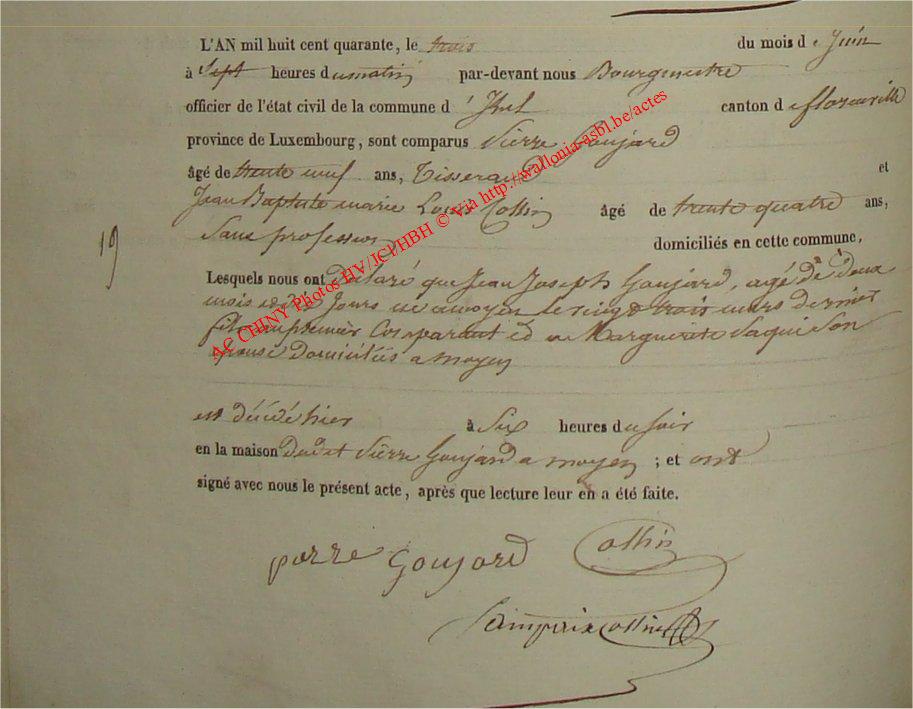 L'AN mil huit cent quarante, le trois du mois de Juin
à Sept heures du matin par-devant nous Bourgmestre
officier de l'état civil de la commune d' Izel canton de florenville
province de Luxembourg, sont comparus Pierre Goujard
âgé de trente neuf ans, Tisserand et
Jean Baptiste marie Louis Collin âgé de trente quatre ans,
Sans profession domiciliés en cette commune,
19
Lesquels nous ont Déclaré que Jean Joseph Goujard, agé de deux
mois et dix Jours né a moyen le vingt trois mars dernier
fils du premier Comparant et de Marguerite Son
epouse Domiciliés a moyen
est décédé hier à Six heures du soir
en la maison Dudit Pierre Goujard a moyen ; et ont
signé avec nous le présent acte, après que lecture leur en a été faite.
pierre Goujard Collin
Collin
AC CHINY Photos HV/JCl/HBH © Via http://wallonia-asbl.be/actes